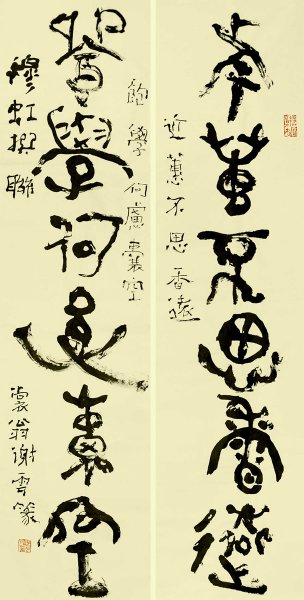 近蕙不思香遠
近蕙不思香遠
飽學何慮囊空
飽學何慮囊空
穆虹撰聯
裳翁謝雲篆